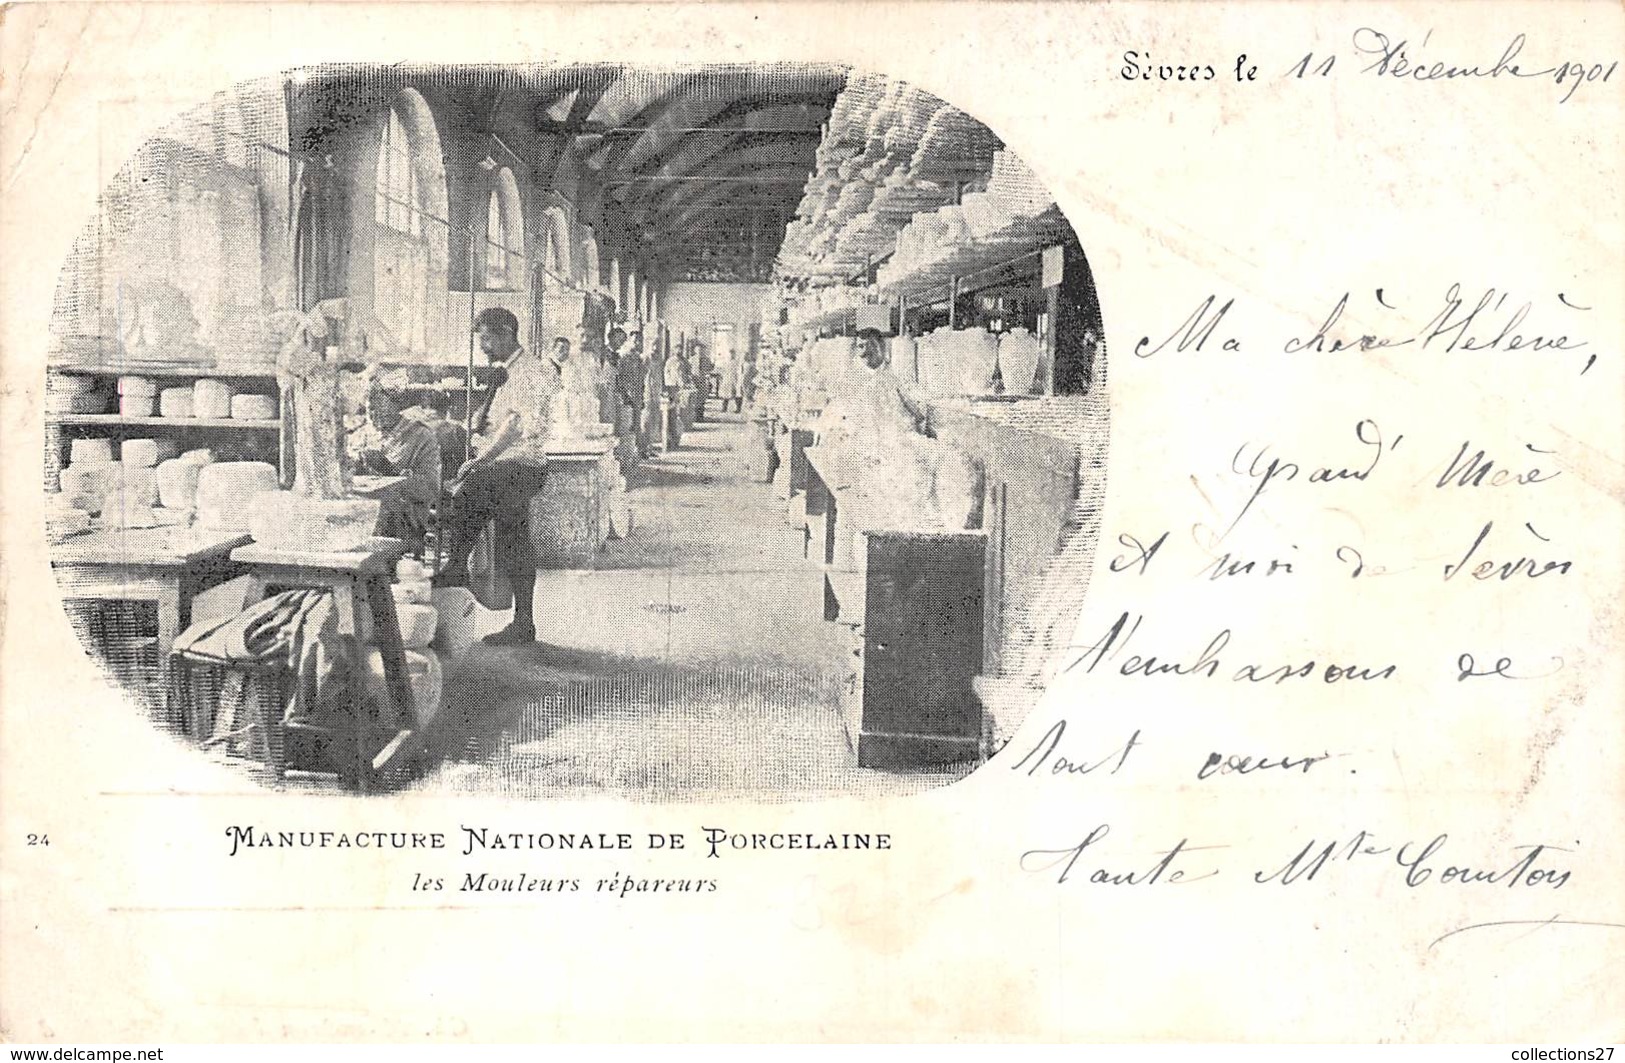 Sèvres le 11 Décembre 1901
Ma chère Hélène,
Grand' Mère
et moi de Sèvres
t'embrassons de
tout cœur.
Tante Mte Comtois
24
MANUFACTURE NATIONALE DE PORCELAINE
les Mouleurs répareurs
www.delcampe.net
collections27